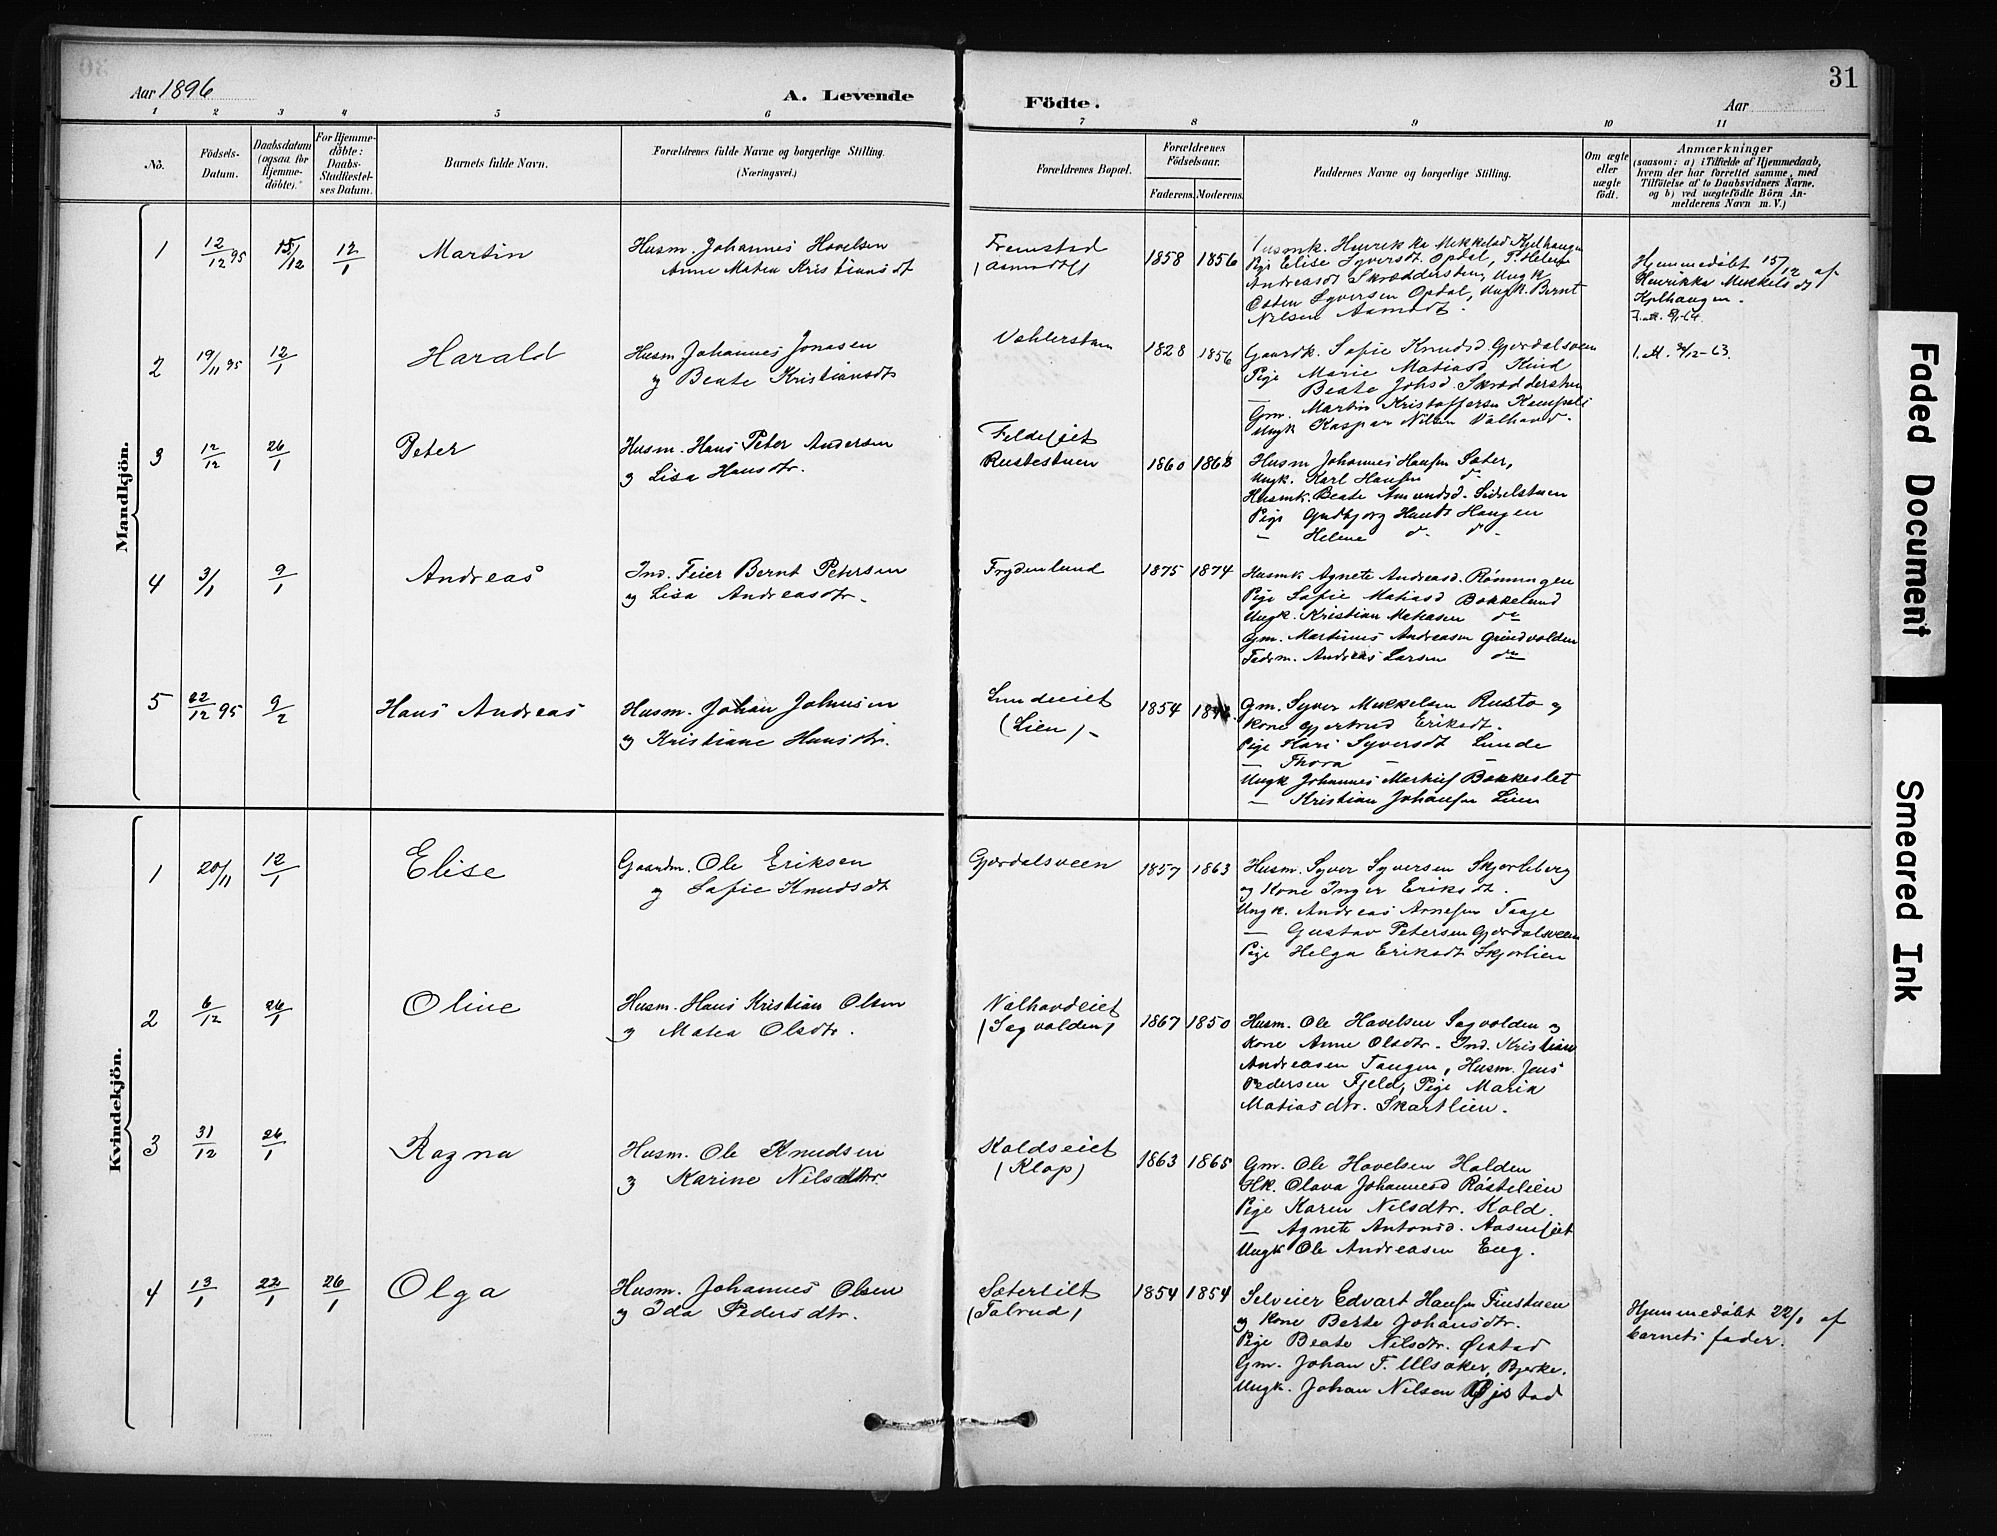 31
Aar 1896
A. Levende
Födte.
Aar
1 2 3 4 5 6 7 8 9 10 11
No.
Födsels-
Datum.
Daabsdatum
(ogsaa for
Hjemme-
döbte).
For Hjemme-
döbte:
Daabs-
Stadfæstel-
ses Datum.
Barnets fulde Navn.
Forældrenes fulde Navne og borgerlige Stilling.
(Næringsvei.)
Forældrenes Bopæl.
Forældrenes
Födselsaar.
Faderens. Moderens.
Faddernes Navne og borgerlige Stilling.
Om ægte
eller
uægte
födt.
Anmærkninger
(saasom: a) i Tilfælde af Hjemmedaab,
hvem der har forrettet samme, med
Tilföielse af to Daabsvidners Navne.
og b) ved uægtefödte Börn An-
melderens Navn m. V.)
Mandkjön.
1 12/12 95 15/12 12/1 Martin
Husm. Johannes Hovelsen
Anne Matea Kristiansdt
Fremstad
1858 1856
Pige Elise Syversdt Opdal, P. Helene
Andreasdt Skrædderstuen, Ungk
Syversen Opdal, Ungk. Bernt
Nilsen Aamodt.
Hjemmedöbt 15/12 af
Henrikka Mikkelsdt
Kjelhaugen.
2 19/11 95 12/1 Harald
Husm. Johannes Jonasen
og Beate Kristiansdtr
1828 1856
Gaardk. Sofie Knudsd. Gjørdalsveen
Pige Marie Matiasd Kind
Beate Johsd. Skrædderstuen
Gm. Martin Kristoffersen
Ungk Kaspar Nilsen Valhovd.
3 12/12 26/1 Peter
Husm. Hans Peter Andersen
og Lisa Hansdtr.
Rustestuen
1860 1868
Husm Johannes Hansen Sæter,
Ungk. Karl Hansen do
Husmk. Beate Amundsd. Sidselstuen
Pige Gudbjorg Hansdt Haugen
- Helene do do
4 3/1 9/1 Andreas
Ind. Feier Bernt Petersen
og Lisa Andreasdtr.
Frydenlund
1875 1874
Husmk Agnete Andreasd. Rönningen
Pige Sofie Matiasd Bakkelund
Ungk. Kristian Matiasen do
Gm. Martinus Andreasen Grindvolden
Federm. Andreas Larsen do
5 22/12 95 9/2 Hans Andreas
Husm. Johan Johnsen
og Kristiane Hansdtr.
Lundeeiet
(Lien)
1854
Gm. Syver Mikkelsen Rusto og
Kone Gjertrud Eriksdt.
Pige Kari Syversdt Lunde
- Thora - -
Ungk Johannes
- Kristian Johansen Lien
Kvindekjön.
1 20/11 12/1 Elise
Gaardm. Ole Eriksen
og Sofie Knudsdt
Gjørdalsveen
1857 1863
Husm. Syver Syversen Skjørleberg
og Kone Inger Eriksdt.
Ungk. Andreas Arnesen Taaje
- Gustav Petersen Gjørdalsveen
Pige Helga Eriksdt Skjørlien
2 6/12 26/1 Oline
Husm. Hans Kristian Olsen
og Matea Olsdtr.
Valhovdeiet
(Sagvolden)
1867 1850
Husm. Ole Hovelsen Sagvolden og
Kone Anne Olsdtr. Ind. Kristian
Andreasen Tangen, Husm. Jens
Pedersen Fjeld, Pige Maria
Matiasdtr. Skartlien.
3 31/12 26/1 Ragna
Husm. Ole Knudsen
og Karine Nilsdtr.
Koldseiet
(Klop)
1863 1865
Gm. Ole Hovelsen Holden
Hk. Olava Johannesd Røstelien
Pige Karen Nilsdtr. Kold.
- Agnete Antonsd.
Ungk Ole Andreasen Eng.
4 13/1 22/1 26/1 Olga
Husm. Johannes Olsen
og Ida Pedersdtr.
(Tolrud)
1854 1854
Selveier Edvart Hansen
og Kone Berte Johansdtr.
Pige Beate Nilsdtr.
Gm. Johan F. Ulsaker, Bjerke.
Ungk. Johan Nilsen
Hjemmedöbt 22/1 af
barnets fader.
Faded Document
Smeared Ink